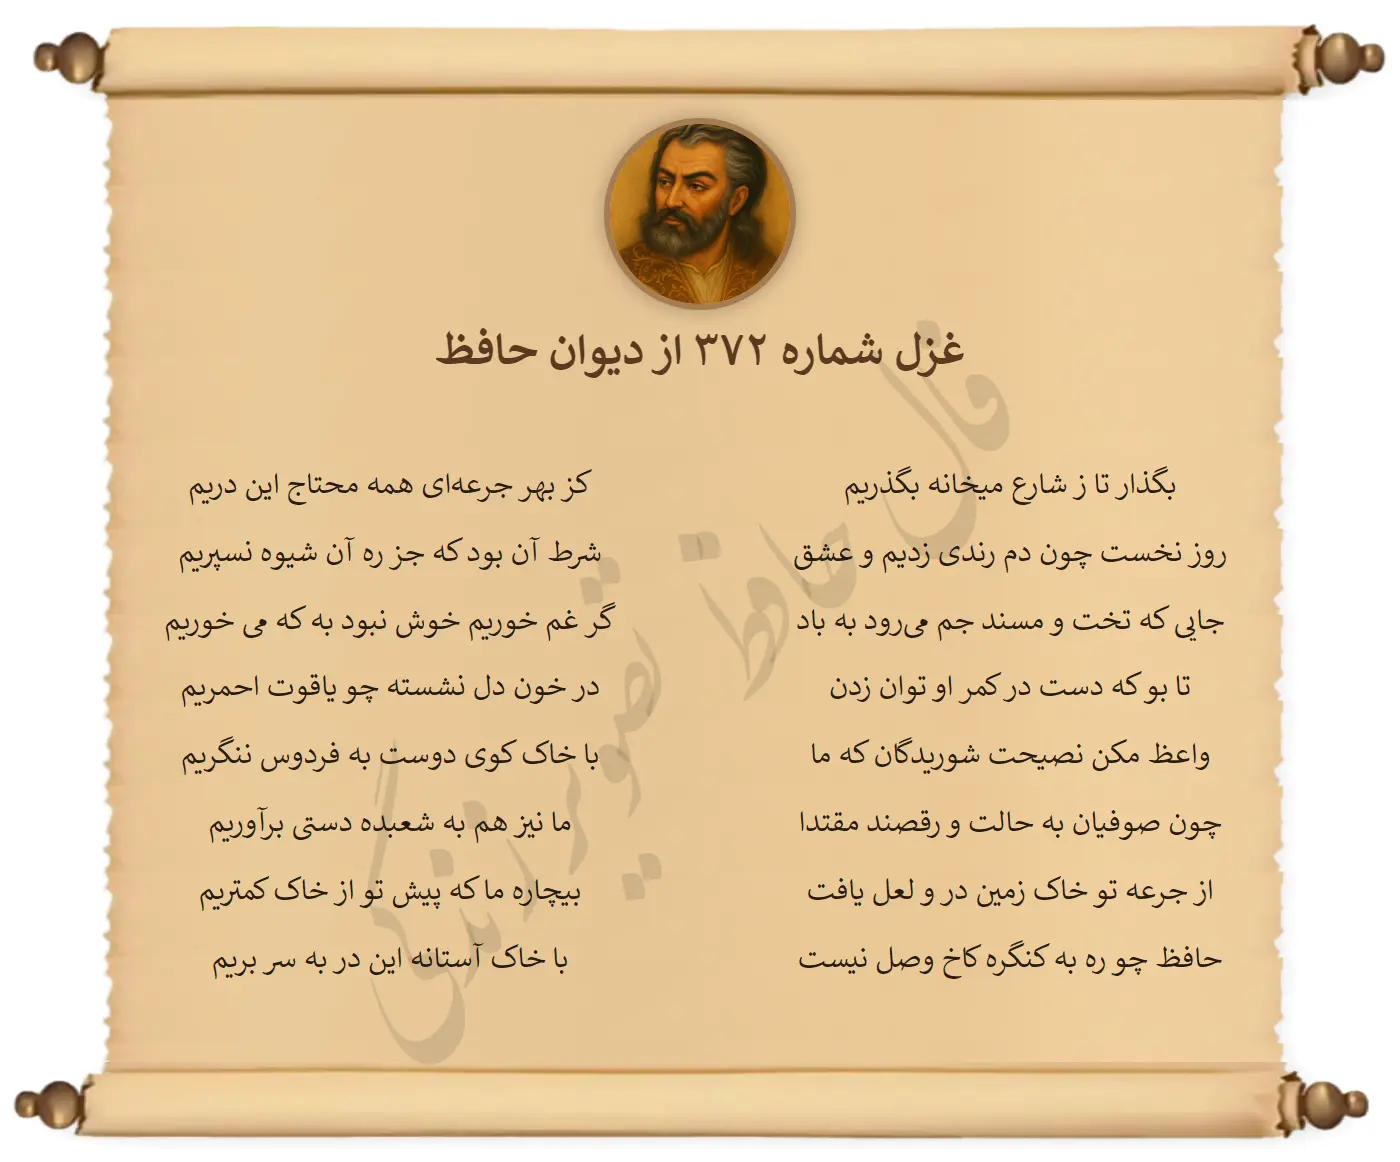 غزل شماره ۳۷۲ از دیوان حافظ
بگذار تا ز شارع میخانه بگذریم
کز بهر جرعه‌ای همه محتاج این دریم
روز نخست چون دم رندی زدیم و عشق
شرط آن بود که جز ره آن شیوه نسپریم
جایی که تخت و مسند جم می‌رود به باد
گر غم خوریم خوش نبود به که می خوریم
تا بو که دست در کمر او توان زدن
در خون دل نشسته چو یاقوت احمریم
واعظ مکن نصیحت شوریدگان که ما
با خاک کوی دوست به فردوس ننگریم
چون صوفیان به حالت و رقصند مقتدا
ما نیز هم به شعبده دستی برآوریم
از جرعه تو خاک زمین در و لعل یافت
بیچاره ما که پیش تو از خاک کمتریم
حافظ چو ره به کنگره کاخ وصل نیست
با خاک آستانه این در به سر بریم
فال حافظ تصویر زندگی